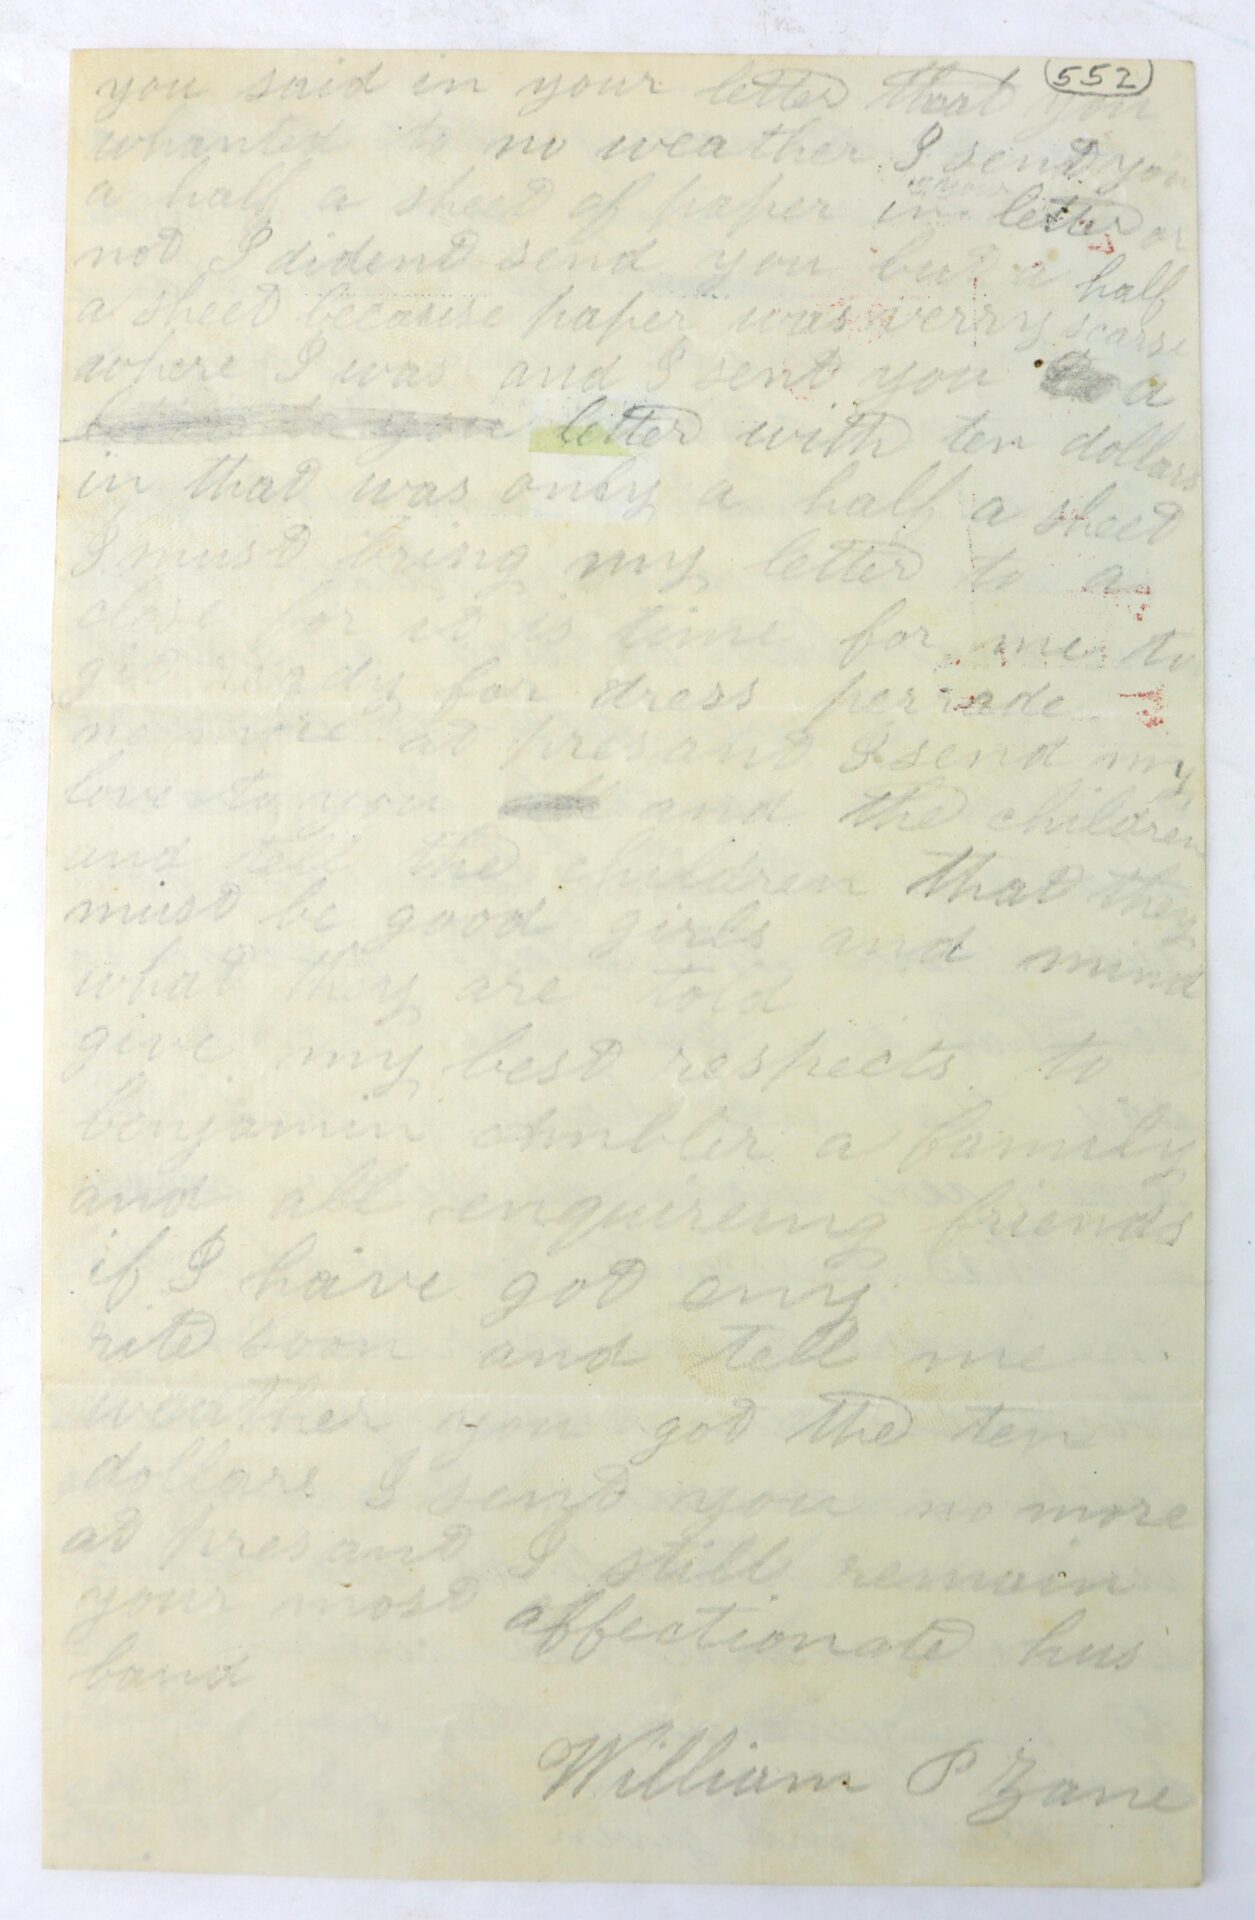 552
you said in your letter that you
whanted to no weather I send you
a half a sheet of paper in letter or
not I didend send you but a half
a sheet because paper was verry scarse
where I was and I send you a
letter with ten dollars
in that was only a half a sheet
I must bring my letter to a
close for it is time for me to
get ready for dress perrade
no more at presant I send my
love to you and the children
and tell the children that they
must be good girls and mind
what they are told
give my best respects to
benjamin ambler a family
and all enquireing friends
if I have got eny
rite soon and tell me
weather you got the ten
dollars I send you no more
at presant I still remain
your most affectionate hus
band
William P Zane